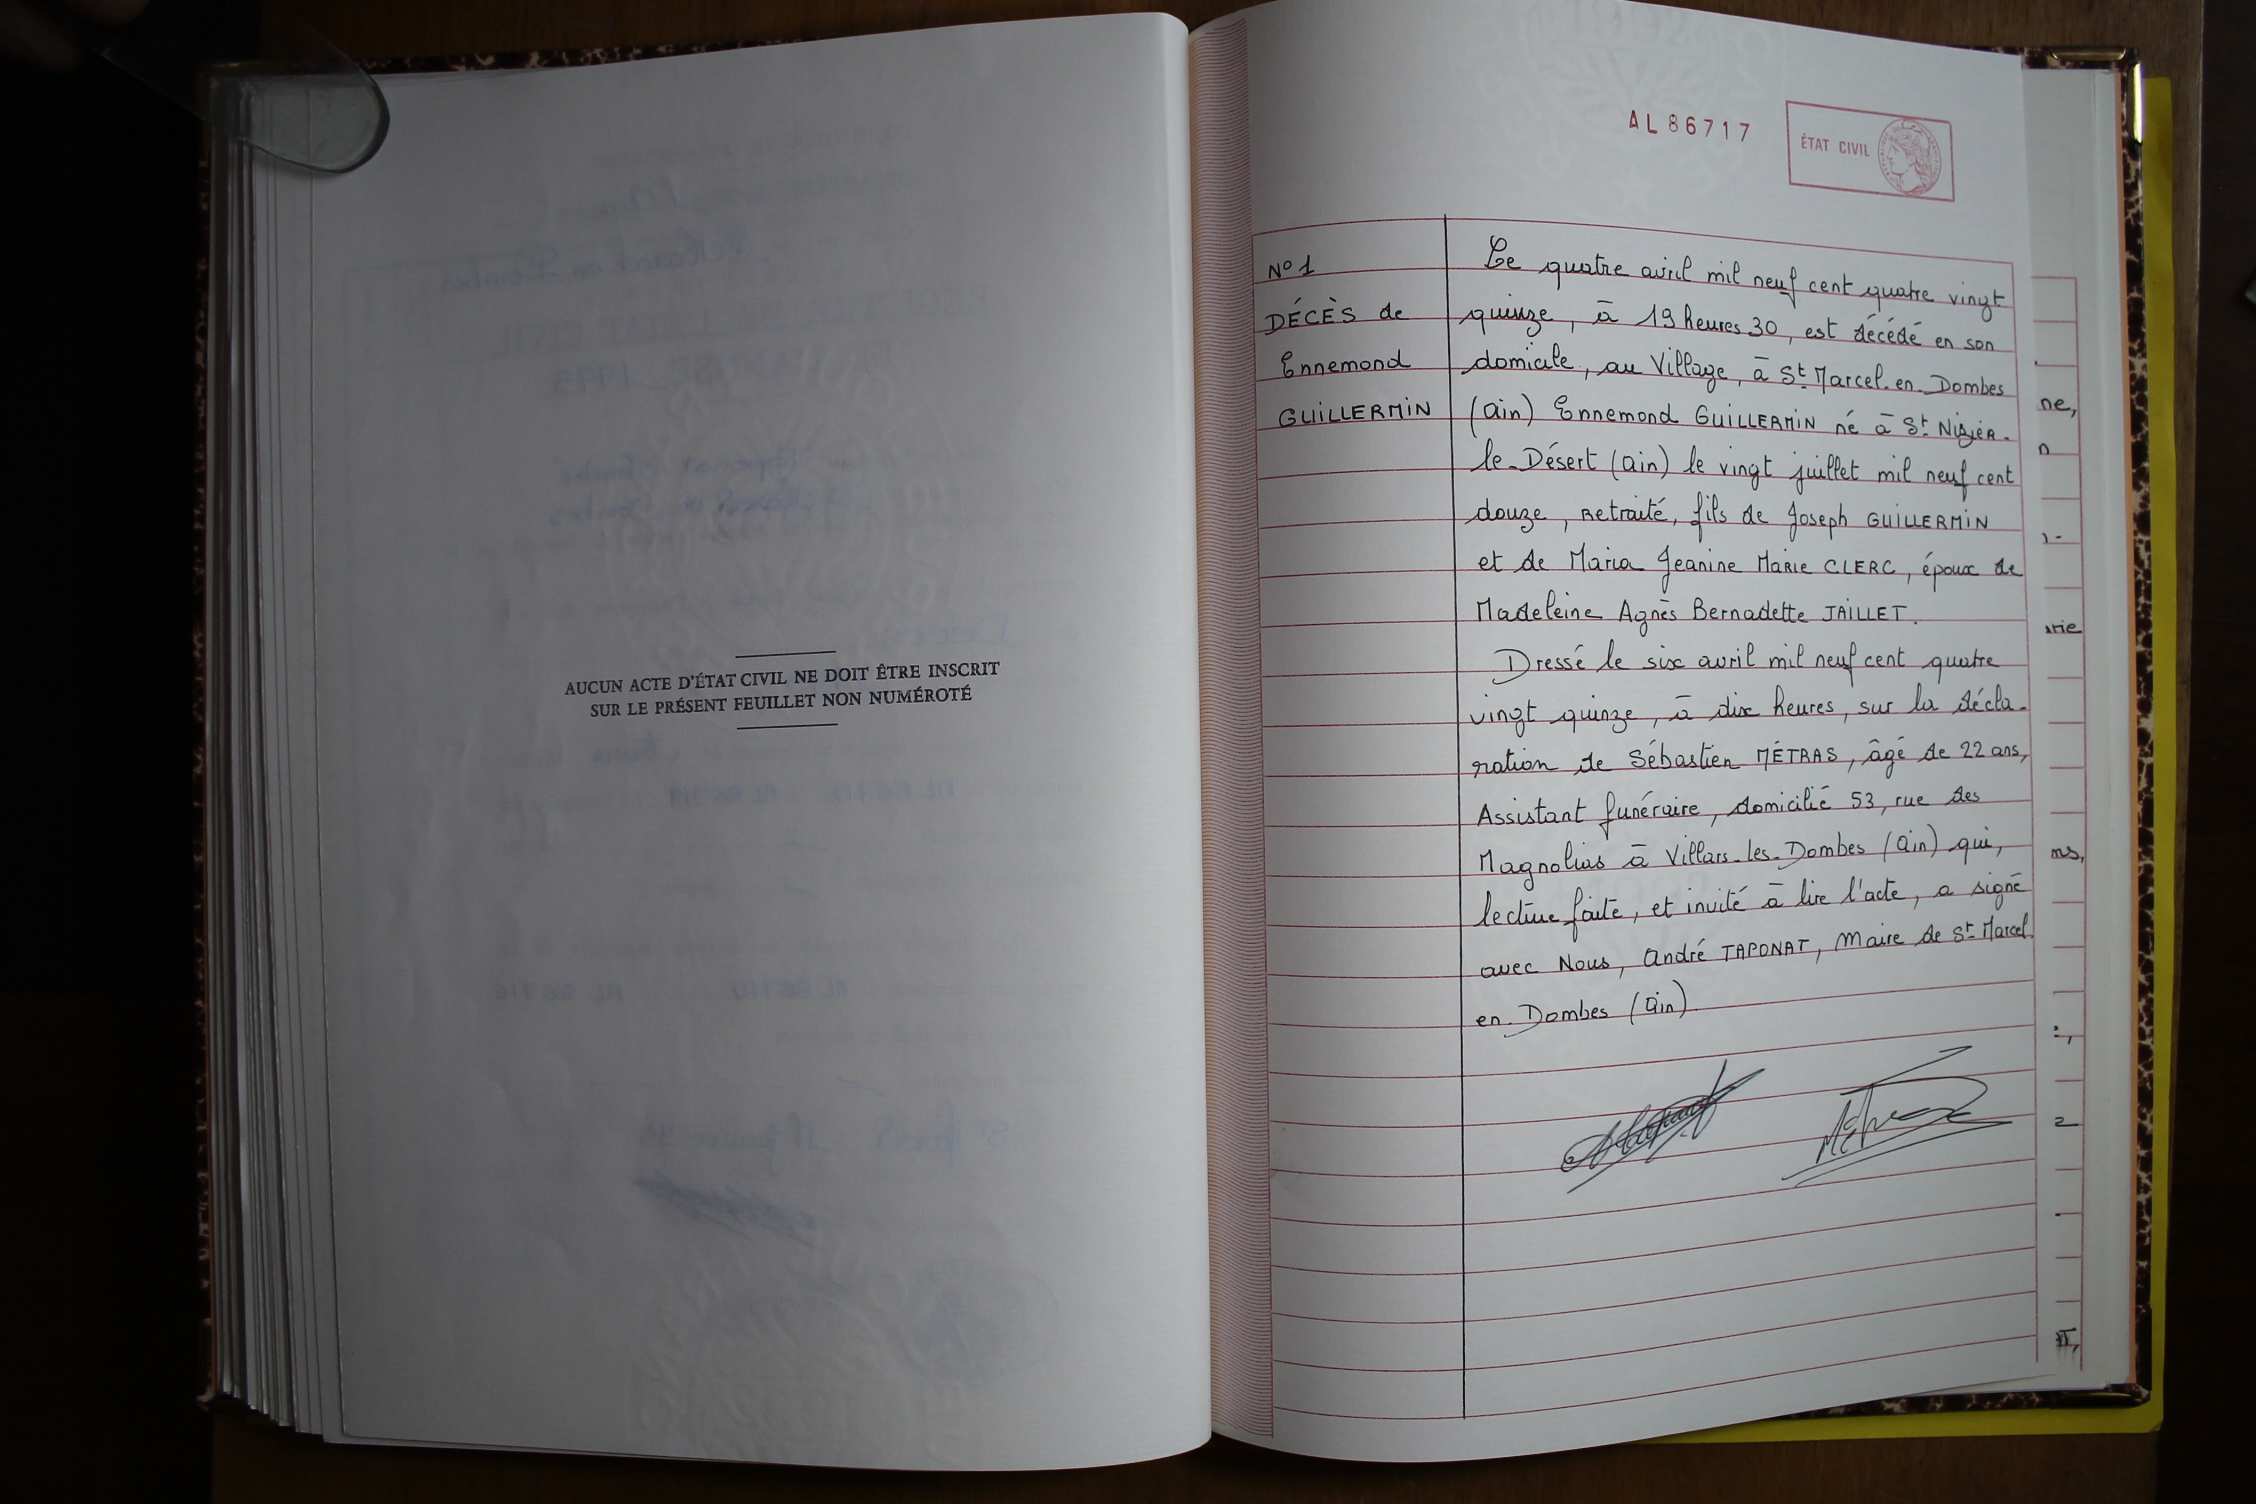 AUCUN ACTE D'ÉTAT CIVIL NE DOIT ÊTRE INSCRIT
SUR LE PRÉSENT FEUILLET NON NUMÉROTÉ
AL 86717
ÉTAT CIVIL
N° 1
DÉCÈS de
Ennemond
GUILLERMIN
Le quatre avril mil neuf cent quatre vingt
quinze, à 19 heures 30, est décédé en son
domicile, au Village, à St Marcel-en-Dombes
(Ain) Ennemond GUILLERMIN né à St Nizier-
le-Désert (Ain) le vingt juillet mil neuf cent
douze, retraité, fils de Joseph GUILLERMIN
et de Maria Jeanine Marie CLERC, époux de
Madeleine Agnès Bernadette JAILLET.
Dressé le six avril mil neuf cent quatre
vingt quinze, à dix heures, sur la décla-
ration de Sébastien MÉTRAS, âgé de 22 ans,
Assistant funéraire, domicilié 53, rue des
Magnolias à Villars-les-Dombes (Ain) qui,
lecture faite, et invité à lire l'acte, a signé
avec Nous, André TAPONAT, Maire de St Marcel
en-Dombes (Ain).